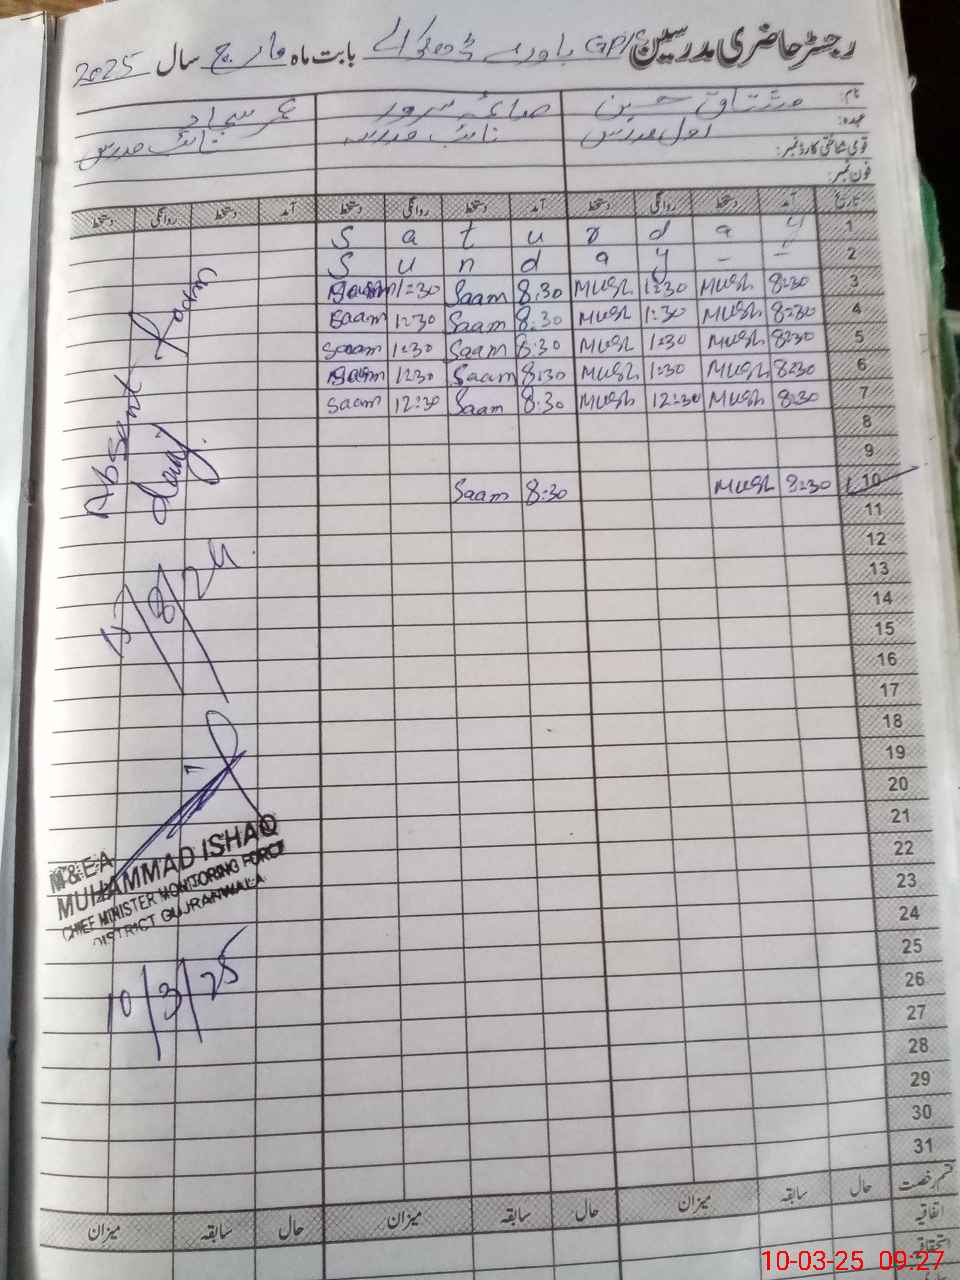 رجسٹر حاضری مدرسین GPS بابت ماہ مارچ سال 2025
نام: مشتاق حسین صائمہ سرور عمر سجاد
عہدہ: اول مدرس نائب مدرسہ نائب مدرس
قومی شناختی کارڈ نمبر:
فون نمبر:
تاریخ آمد دستخط روانگی دستخط آمد دستخط روانگی دستخط آمد دستخط روانگی دستخط
S a t u r d a y 1
S u n d a y - - 2
Saam 1:30 Saam 8:30 MUSH 1:30 MUSH 8:30 3
Saam 1:30 Saam 8:30 MUSH 1:30 MUSH 8:30 4
Saam 1:30 Saam 8:30 MUSH 1:30 MUSH 8:30 5
Saam 1:30 Saam 8:30 MUSH 1:30 MUSH 8:30 6
Saam 12:30 Saam 8:30 MUSH 12:30 MUSH 8:30 7
8
9
Saam 8:30 MUSH 8:30 10
11
12
13
14
15
16
17
18
19
20
21
22
23
24
25
26
27
28
29
30
31
Absent from
17/8/24
M&EA
MUHAMMAD ISHAQ
CHIEF MINISTER MONITORING FORCE
DISTRICT GUJRANWALA
10/3/25
قسم رخصت حال سابقہ میزان حال سابقہ میزان حال سابقہ میزان
اتفاقیہ
استحقاقی
10-03-25 09:27